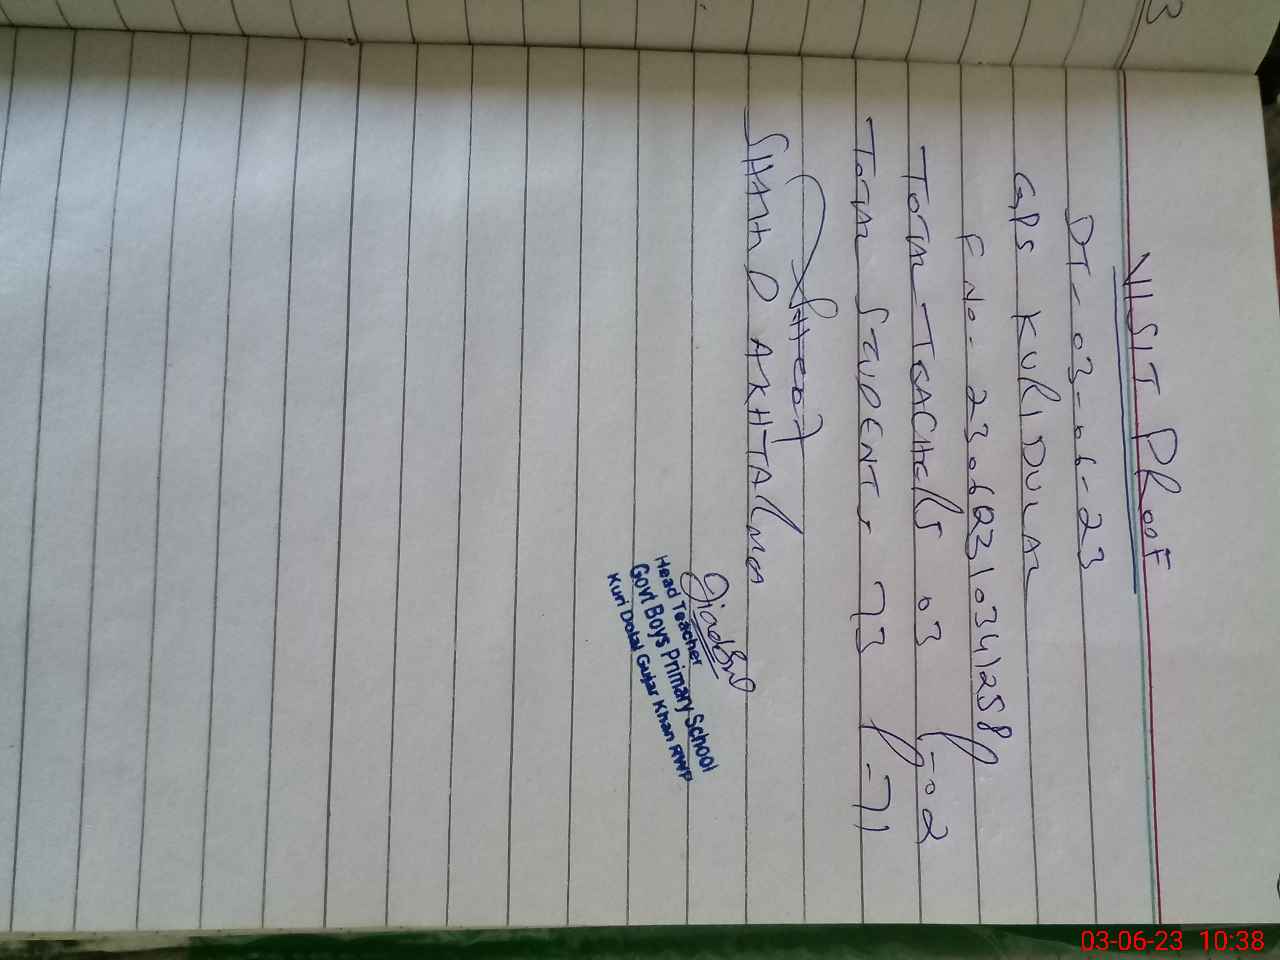 VISIT PROOF
DT-03-06-23
GPS KURI DULAL
F No. 23062310341258
TOTAL TEACHERS 03 P-02
TOTAL STUDENTS 73 P-71
SHAHID AKHTAR MEA
Head Teacher
Govt Boys Primary School
Kuri Dalal Gujar Khan RWP
03-06-23 10:38